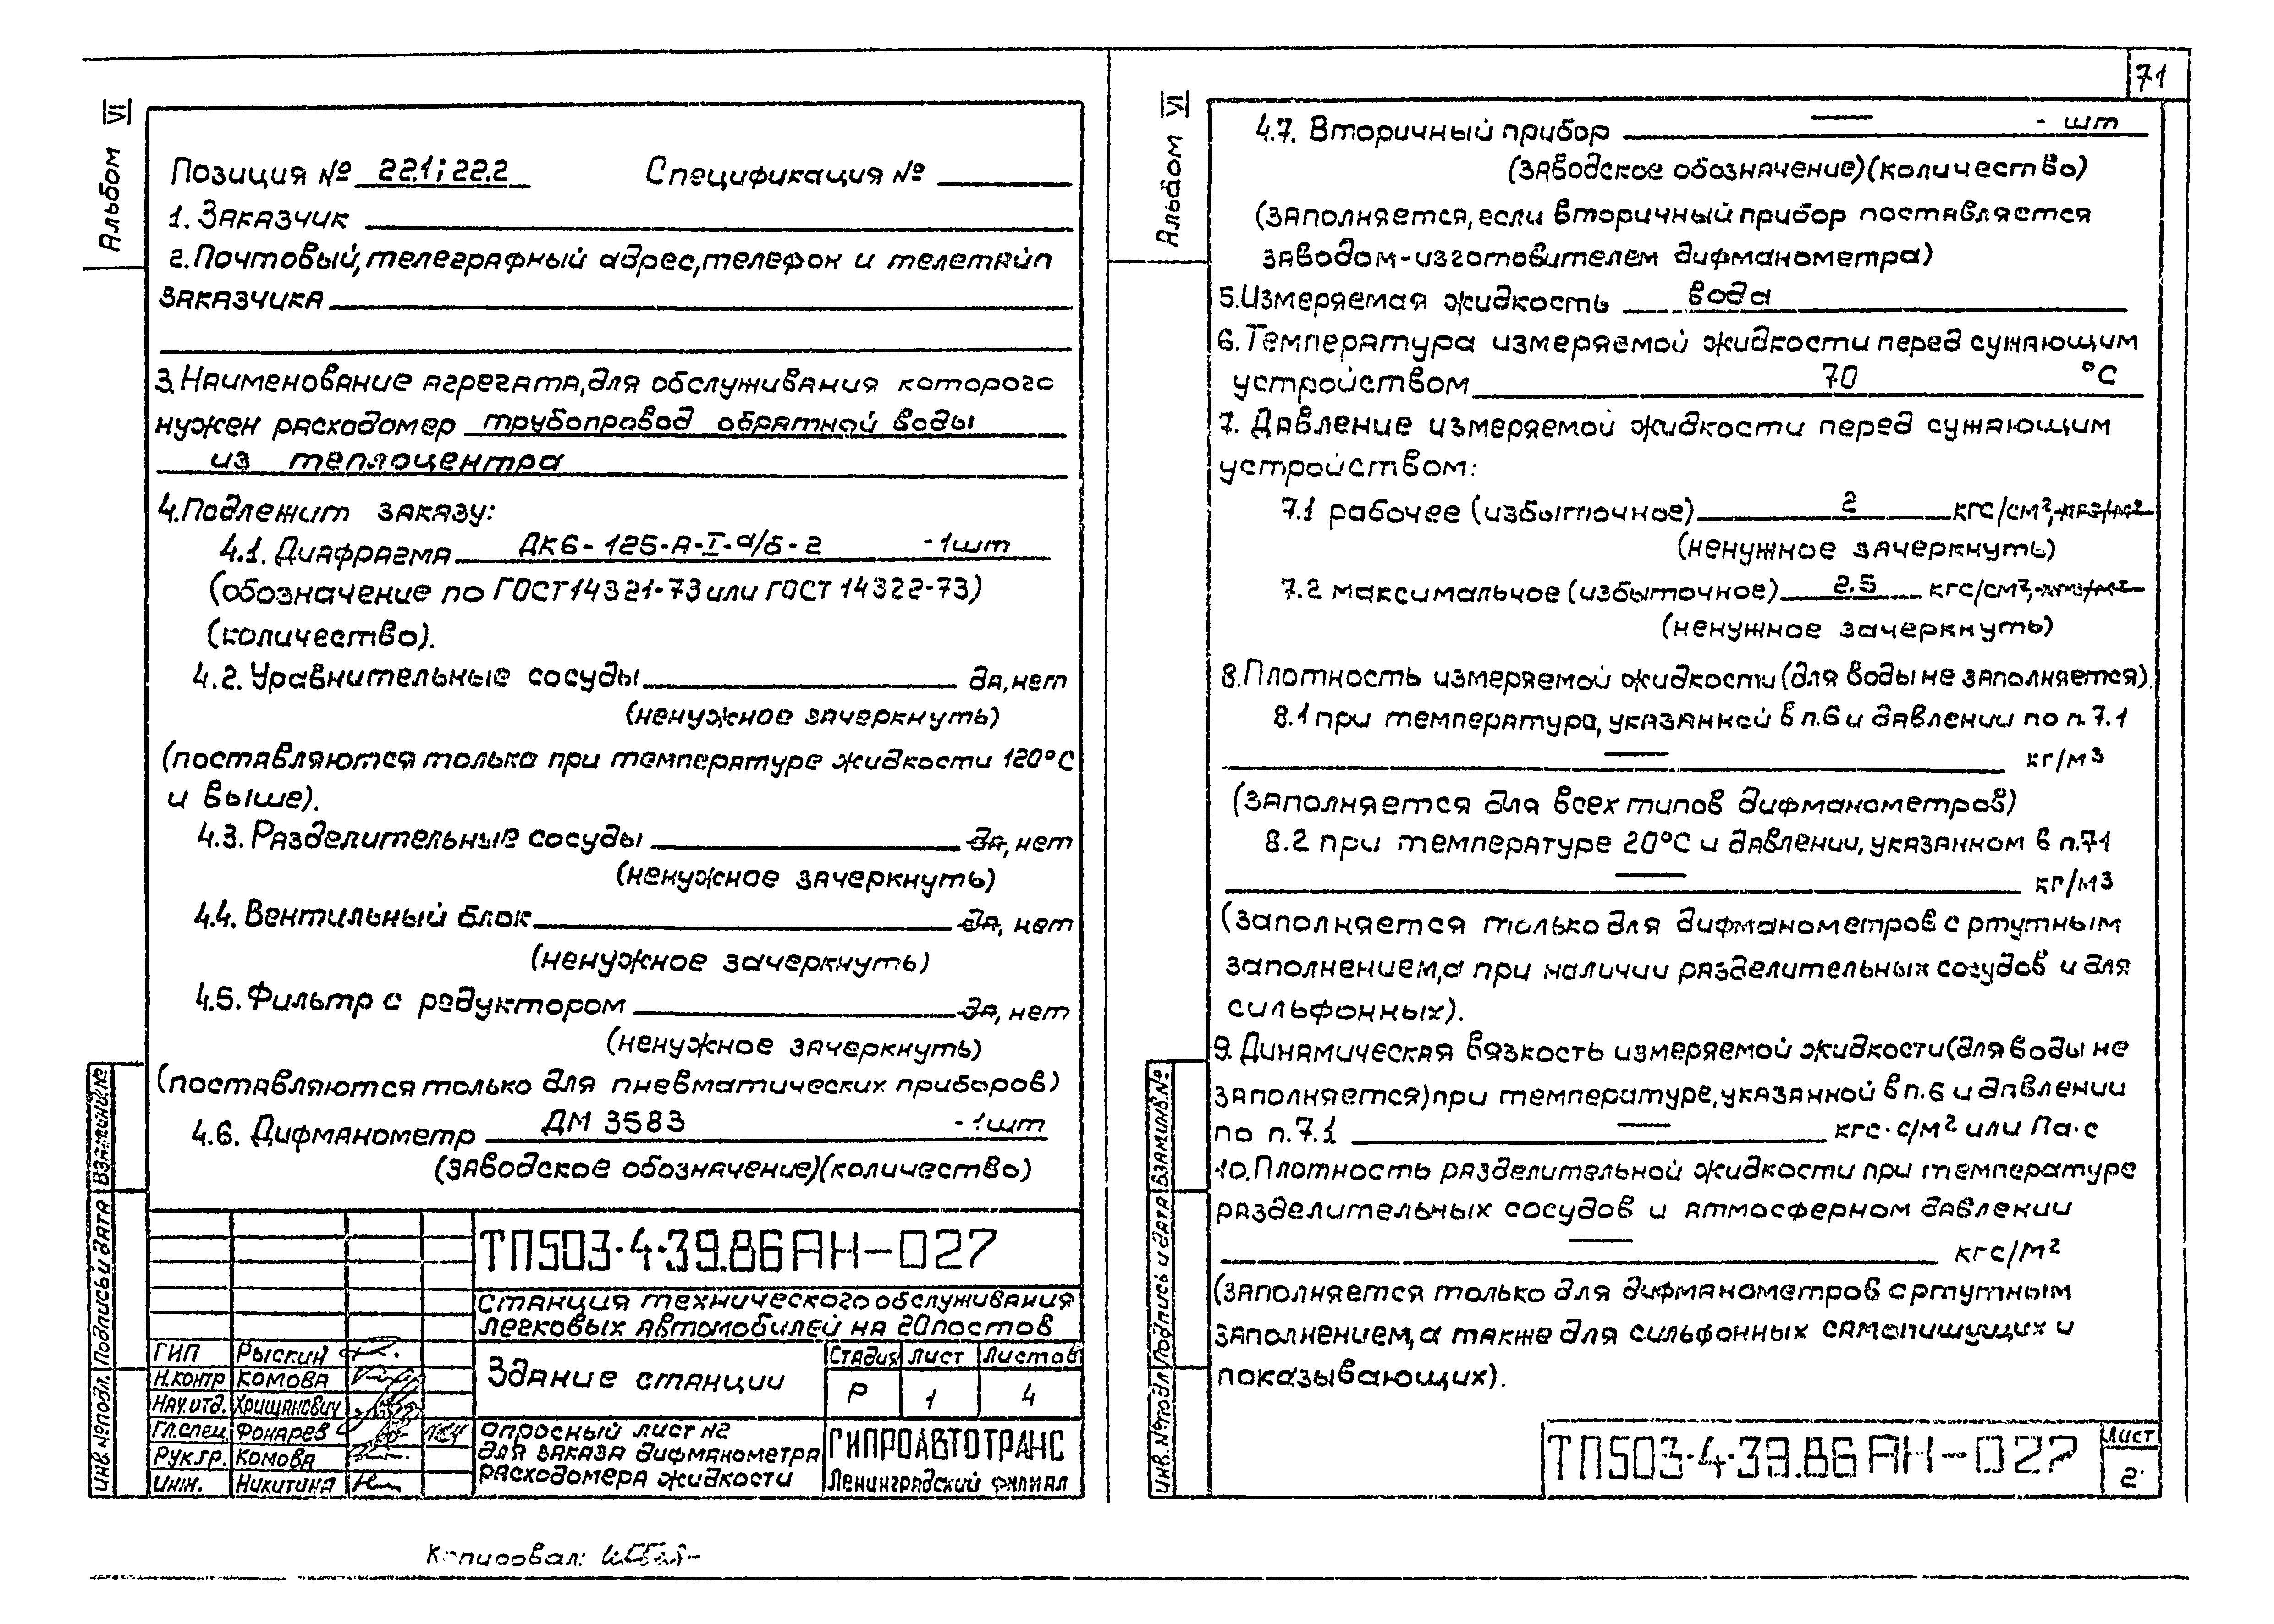 71
Альбом VI
Позиция № 22.1; 22.2 Спецификация №
1. Заказчик
2. Почтовый, телеграфный адрес, телефон и телетайп
заказчика
3. Наименование агрегата, для обслуживания которого
нужен расходомер трубопровод обратной воды
из теплоцентра
4. Подлежит заказу:
4.1. Диафрагма ДК6-125-А-I-а/б-2 -1шт
(обозначение по ГОСТ 14321-73 или ГОСТ 14322-73)
(количество).
4.2. Уравнительные сосуды да, нет
(ненужное зачеркнуть)
(поставляются только при температуре жидкости 120°С
и выше).
4.3. Разделительные сосуды да, нет
(ненужное зачеркнуть)
4.4. Вентильный блок да, нет
(ненужное зачеркнуть)
4.5. Фильтр с редуктором да, нет
(ненужное зачеркнуть)
(поставляются только для пневматических приборов)
4.6. Дифманометр ДМ 3583 -1шт
(заводское обозначение)(количество)
ТП503-4-39.86 АН-027
Станция технического обслуживания
легковых автомобилей на 20 постов
ГИП Рыскин
Н.контр Комова
Нач.отд. Хрищанович
Гл.спец. Фонарев
Рук.гр. Комова
Инж. Никитина
Здание станции
Стадия Лист Листов
Р 1 4
Опросный лист №2
для заказа дифманометра
расходомера жидкости
ГИПРОАВТОТРАНС
Ленинградский филиал
Инв.№подл. Подпись и дата Взам.инв.№
Копировал:
Альбом VI
4.7. Вторичный прибор — - шт
(заводское обозначение)(количество)
(заполняется, если вторичный прибор поставляется
заводом-изготовителем дифманометра)
5. Измеряемая жидкость вода
6. Температура измеряемой жидкости перед сужающим
устройством 70 °С
7. Давление измеряемой жидкости перед сужающим
устройством:
7.1 рабочее (избыточное) 2 кгс/см², кгс/м²
(ненужное зачеркнуть)
7.2 максимальное (избыточное) 2.5 кгс/см², кгс/м²
(ненужное зачеркнуть)
8. Плотность измеряемой жидкости (для воды не заполняется).
8.1 при температура, указанной в п.6 и давлении по п.7.1
— кг/м3
(заполняется для всех типов дифманометров)
8.2 при температуре 20°С и давлении, указанном в п.71
— кг/м3
(заполняется только для дифманометров с ртутным
заполнением, а при наличии разделительных сосудов и для
сильфонных).
9. Динамическая вязкость измеряемой жидкости (для воды не
заполняется) при температуре, указанной в п.6 и давлении
по п.7.1 — кгс·с/м² или Па·с
10. Плотность разделительной жидкости при температуре
разделительных сосудов и атмосферном давлении
— кгс/м²
(заполняется только для дифманометров с ртутным
заполнением, а также для сильфонных самопишущих и
показывающих).
ТП503-4-39.86 АН-027
Лист
2
Инв.№подл Подпись и дата Взам.инв.№